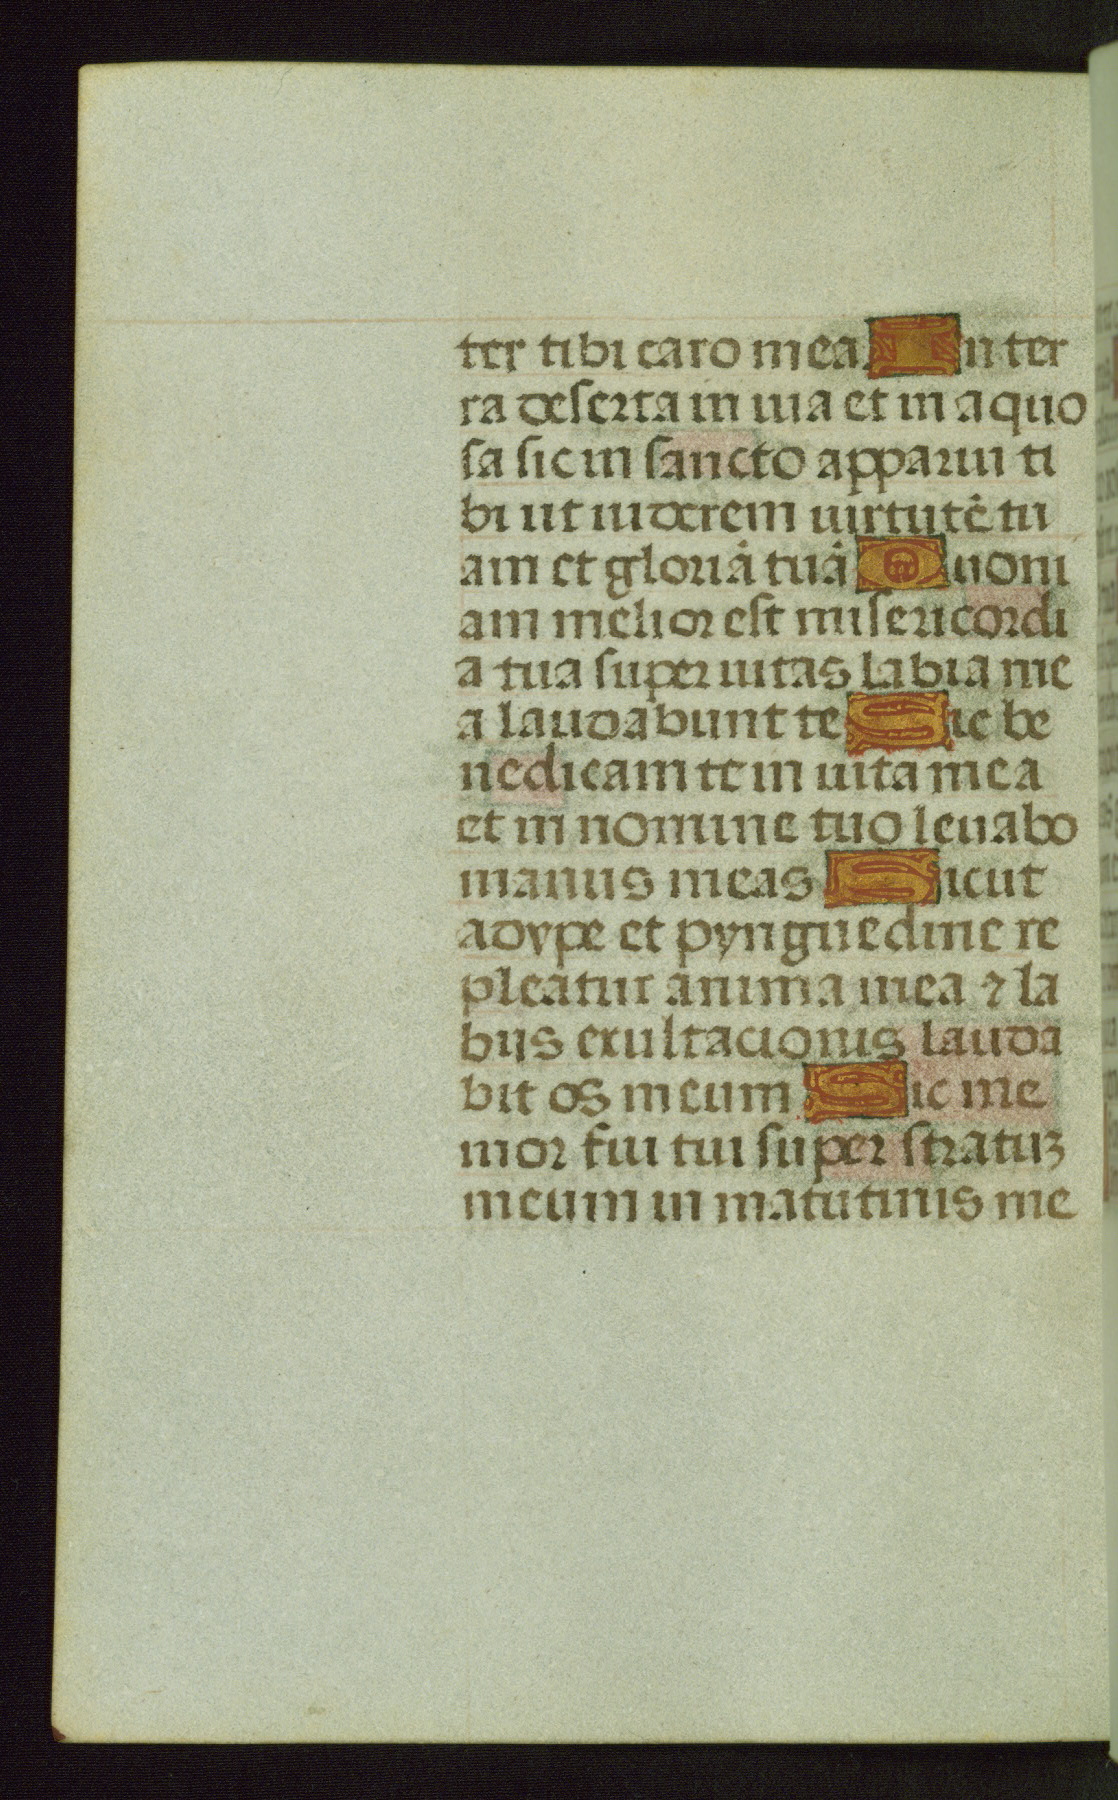 ter tibi caro mea. In ter
ra deserta in uia et in aquo
sa sic in sancto apparui ti
bi ut uiderem uirtutē tu
am et gloriā tuā Quoni
am melior est misericordi
a tua super uitas labia me
a laudabunt te Sic be
nedicam te in uita mea
et in nomine tuo leuabo
manus meas Sicut
adype et pynguedine re
pleatur anima mea ⁊ la
bijs exultacionis lauda
bit os meum Sic me
mor fui tui super stratuʒ
meum in matutinis me